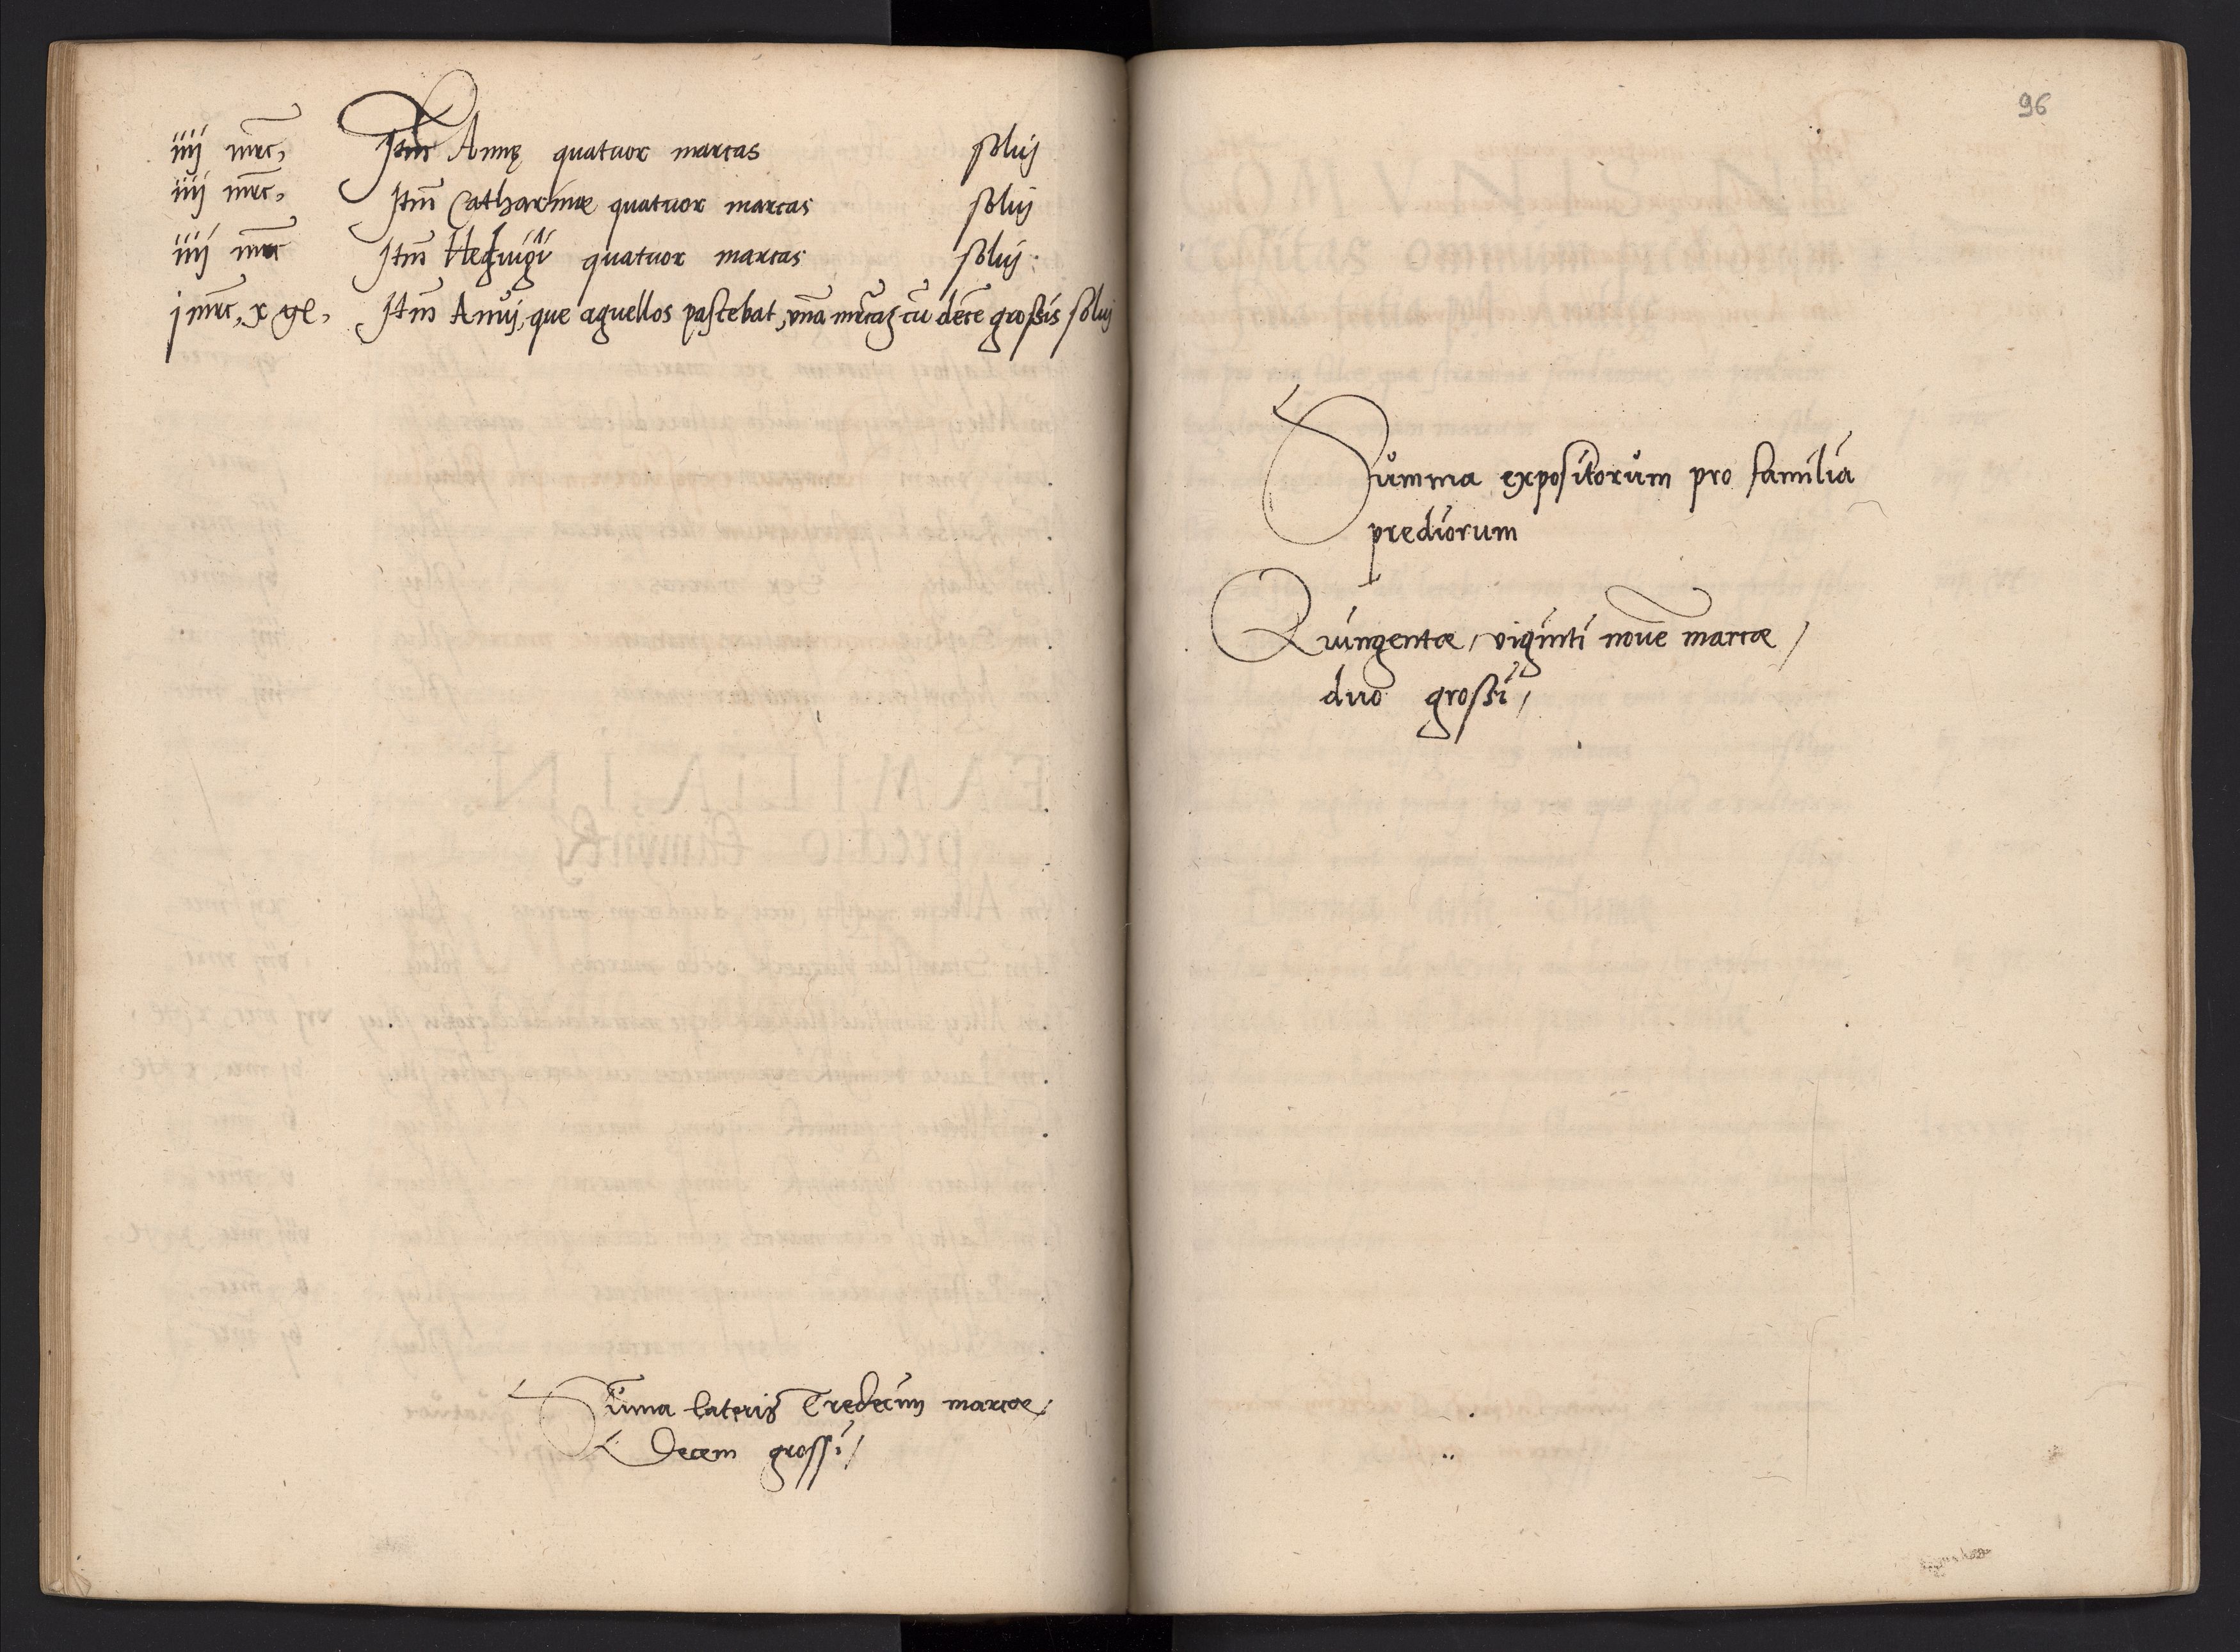 iiij mrc, Itm Annę quatuor marcas soluj
iiij mrc, Itm Catharinæ quatuor marcas soluj
iiij mrc Itm Hedwigi quatuor marcas soluj
j mrc, x gr, Itm Annj, que agnellos pascebat, vna mrcaz cu dece grossis soluj
Suma lateris Tredecim marcæ,
Decem grossi,
96
Summa expositorum pro familia
prediorum
Quingentæ, viginti noue marcæ,
duo grossi,